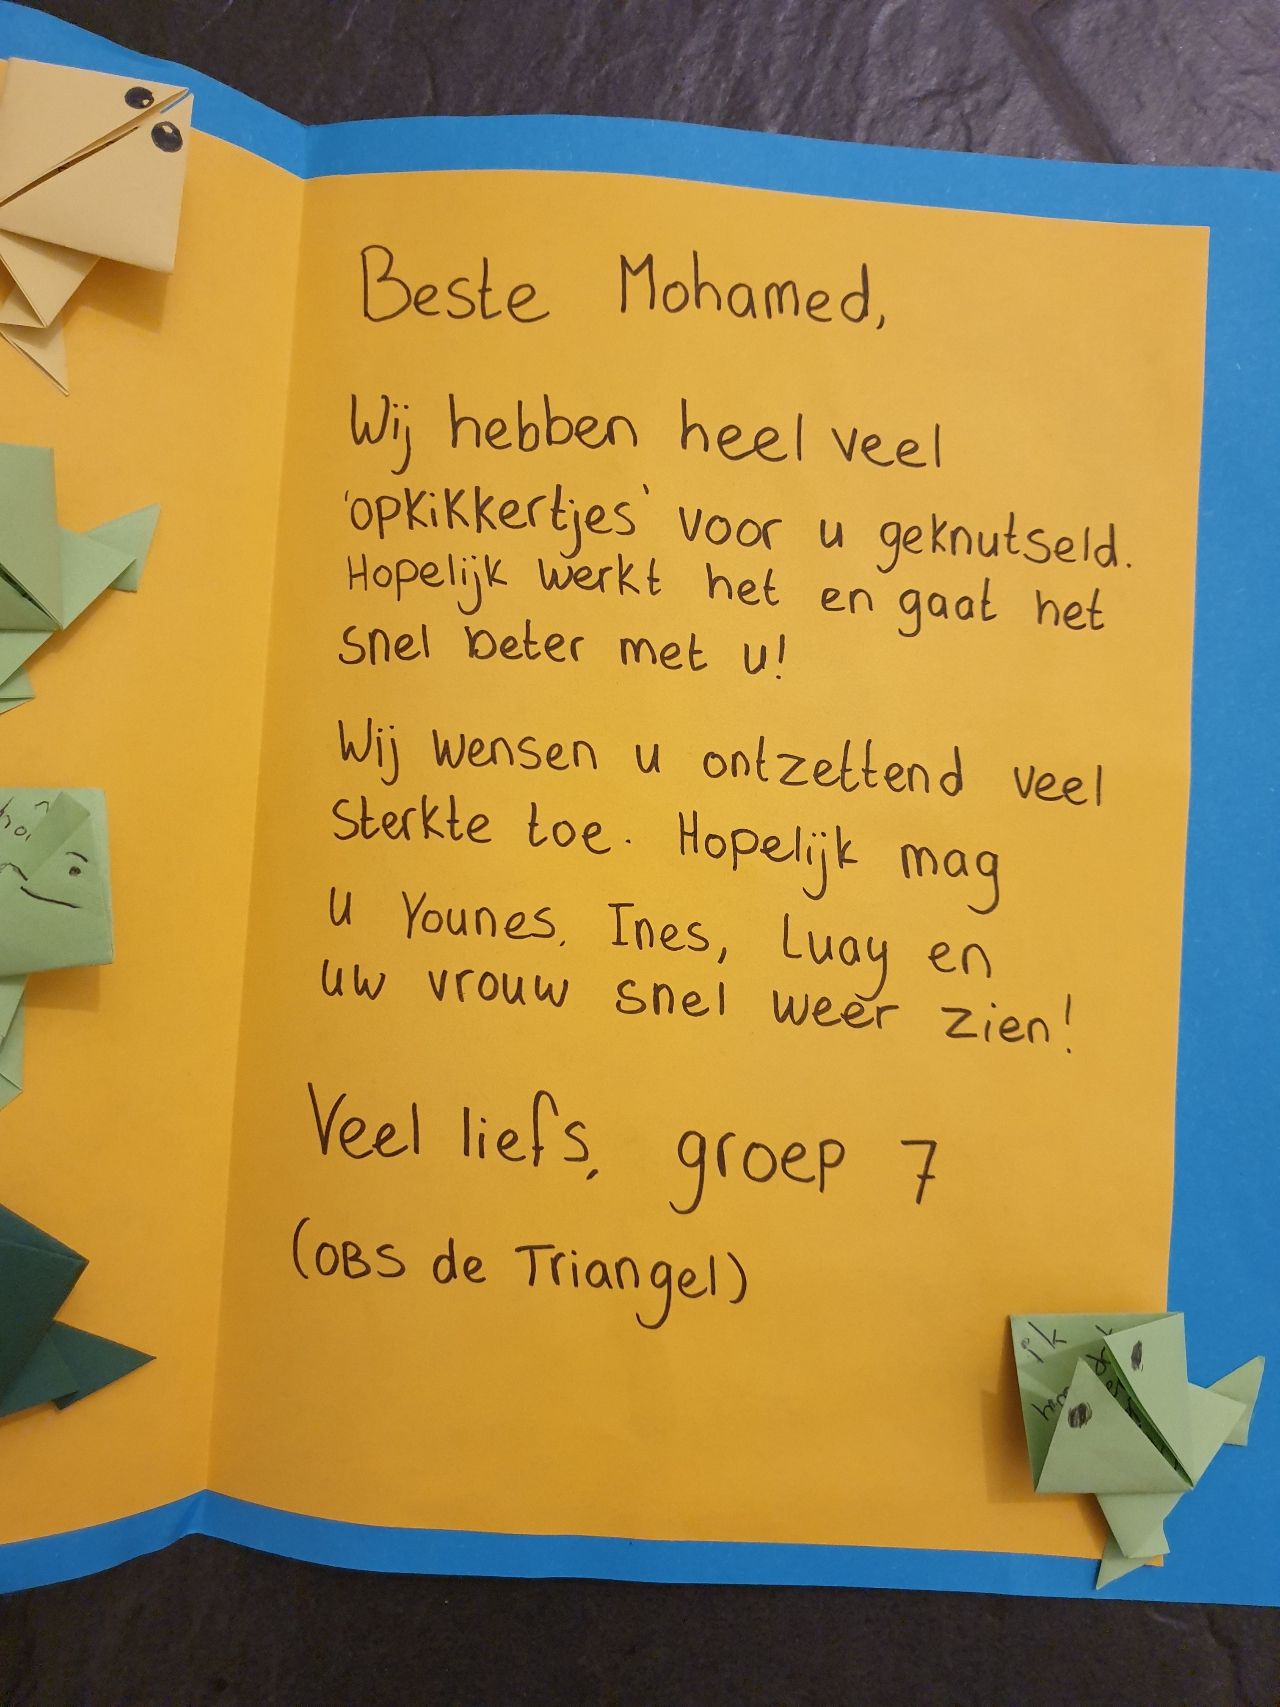 Beste Mohamed,
Wij hebben heel veel
'opkikkertjes' voor u geknutseld.
Hopelijk werkt het en gaat het
snel beter met u!
Wij wensen u ontzettend veel
sterkte toe. Hopelijk mag
u Younes, Ines, Luay en
uw vrouw snel weer zien!
Veel liefs, groep 7
(OBS de Triangel)
ik